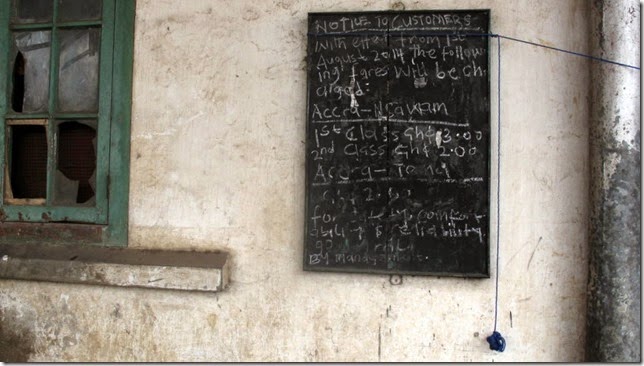 NOTICE TO CUSTOMERS
With effect from 1st
August 2014 the follow-
ing fares will be ch-
arged:
Accra - Nsawam
1st Class GH¢ 3.00
2nd Class GH¢ 2.00
Accra -
for comfort-
reliability
By management.